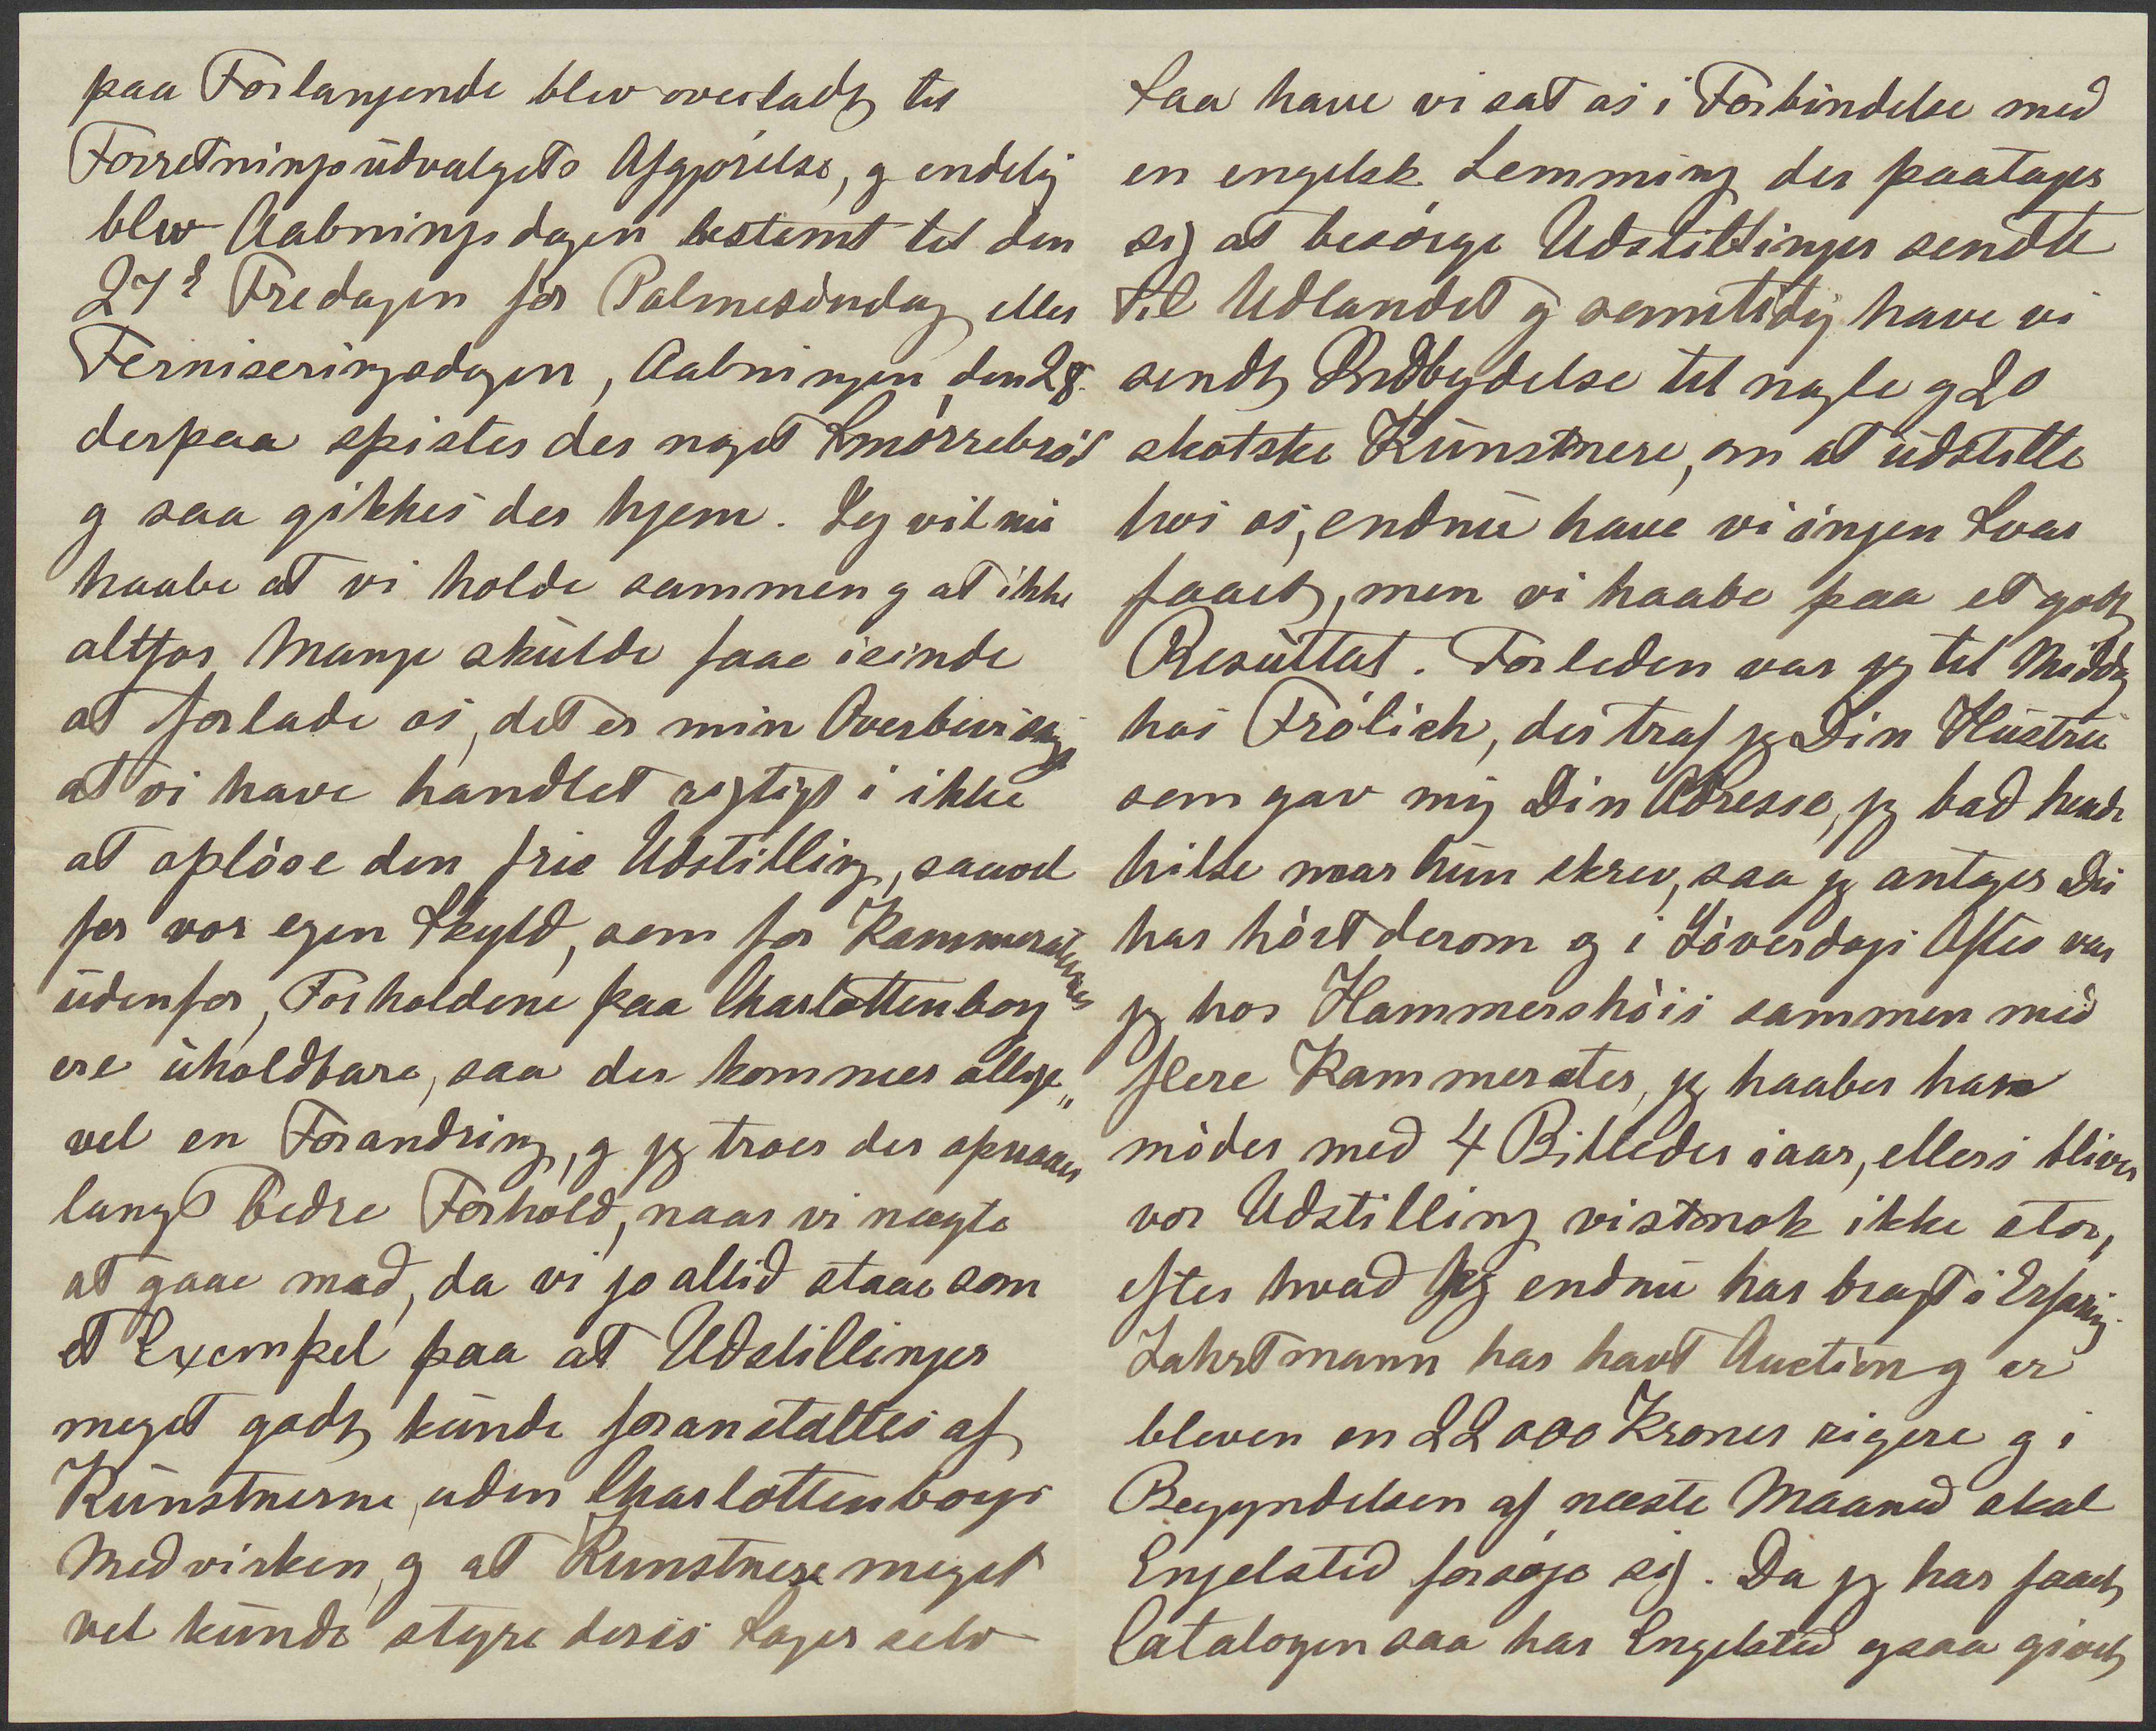 paa Forlangende blev overladt til
Forretningsudvalgets Afgjørelse, og endelig
blev Aabningsdagen bestemt til den
27d Fredagen før Palmesøndag eller
Ferniseringsdagen, Aabningen den 28.
derpaa spistes der noget Smørrebrød
og saa gikkes der hjem. Jeg vil nu
haabe at vi holde sammen og at ikke
altfor Mange skulde faae isinde
at forlade os, det er min Overbevisning
at vi have handlet rigtigt i ikke
at opløse den frie Udstilling, saavel
for vor egen Skyld, som for Kammeraternes
udenfor, Forholdene paa Charlottenborg
ere uholdbare, saa der kommer allige„
vel en Forandring, og jeg troer der opnaaes
langt bedre Forhold, naar vi nægte
at gaae med, da vi jo altid staae som
et Exempel paa at Udstillinger
meget godt kunde foranstaltes af
Kunstnerne, uden Charlottenborgs
Medvirken, og at Kunstnere meget
vel kunde styre deres Sager selv
Saa have vi sat os i Forbindelse med
en engelsk Lemming der paatager
sig at besørge Udstillinger sendte
til Udlandet og samtidig have vi
sendt Indbydelse til nogle og 20
skotske Kunstnere, om at udstille
hos os, endnu have vi ingen Svar
faaet, men vi haabe paa et godt
Resultat. Forleden var jeg til Middag
hos Frølich, der traf jeg Din Hustru
som gav mig Din Adresse, jeg bad hende
hilse naar hun skrev, saa jeg antager Du
har hørt derom og i Løverdags Aftes var
jeg hos Hammershøis sammen med
flere Kammerater, jeg haaber han
møder med 4 Billeder iaar, ellers bliver
vor Udstilling vistnok ikke stor,
efter hvad jeg endnu har bragt i Erfaring.
Zahrtmann har havt Auction og er
bleven en 22000 Kroner rigere og i
Begyndelsen af næste Maaned skal
Engelsted forsøge sig. Da jeg har faaet
Catalogen saa har Engelsted ogsaa givet